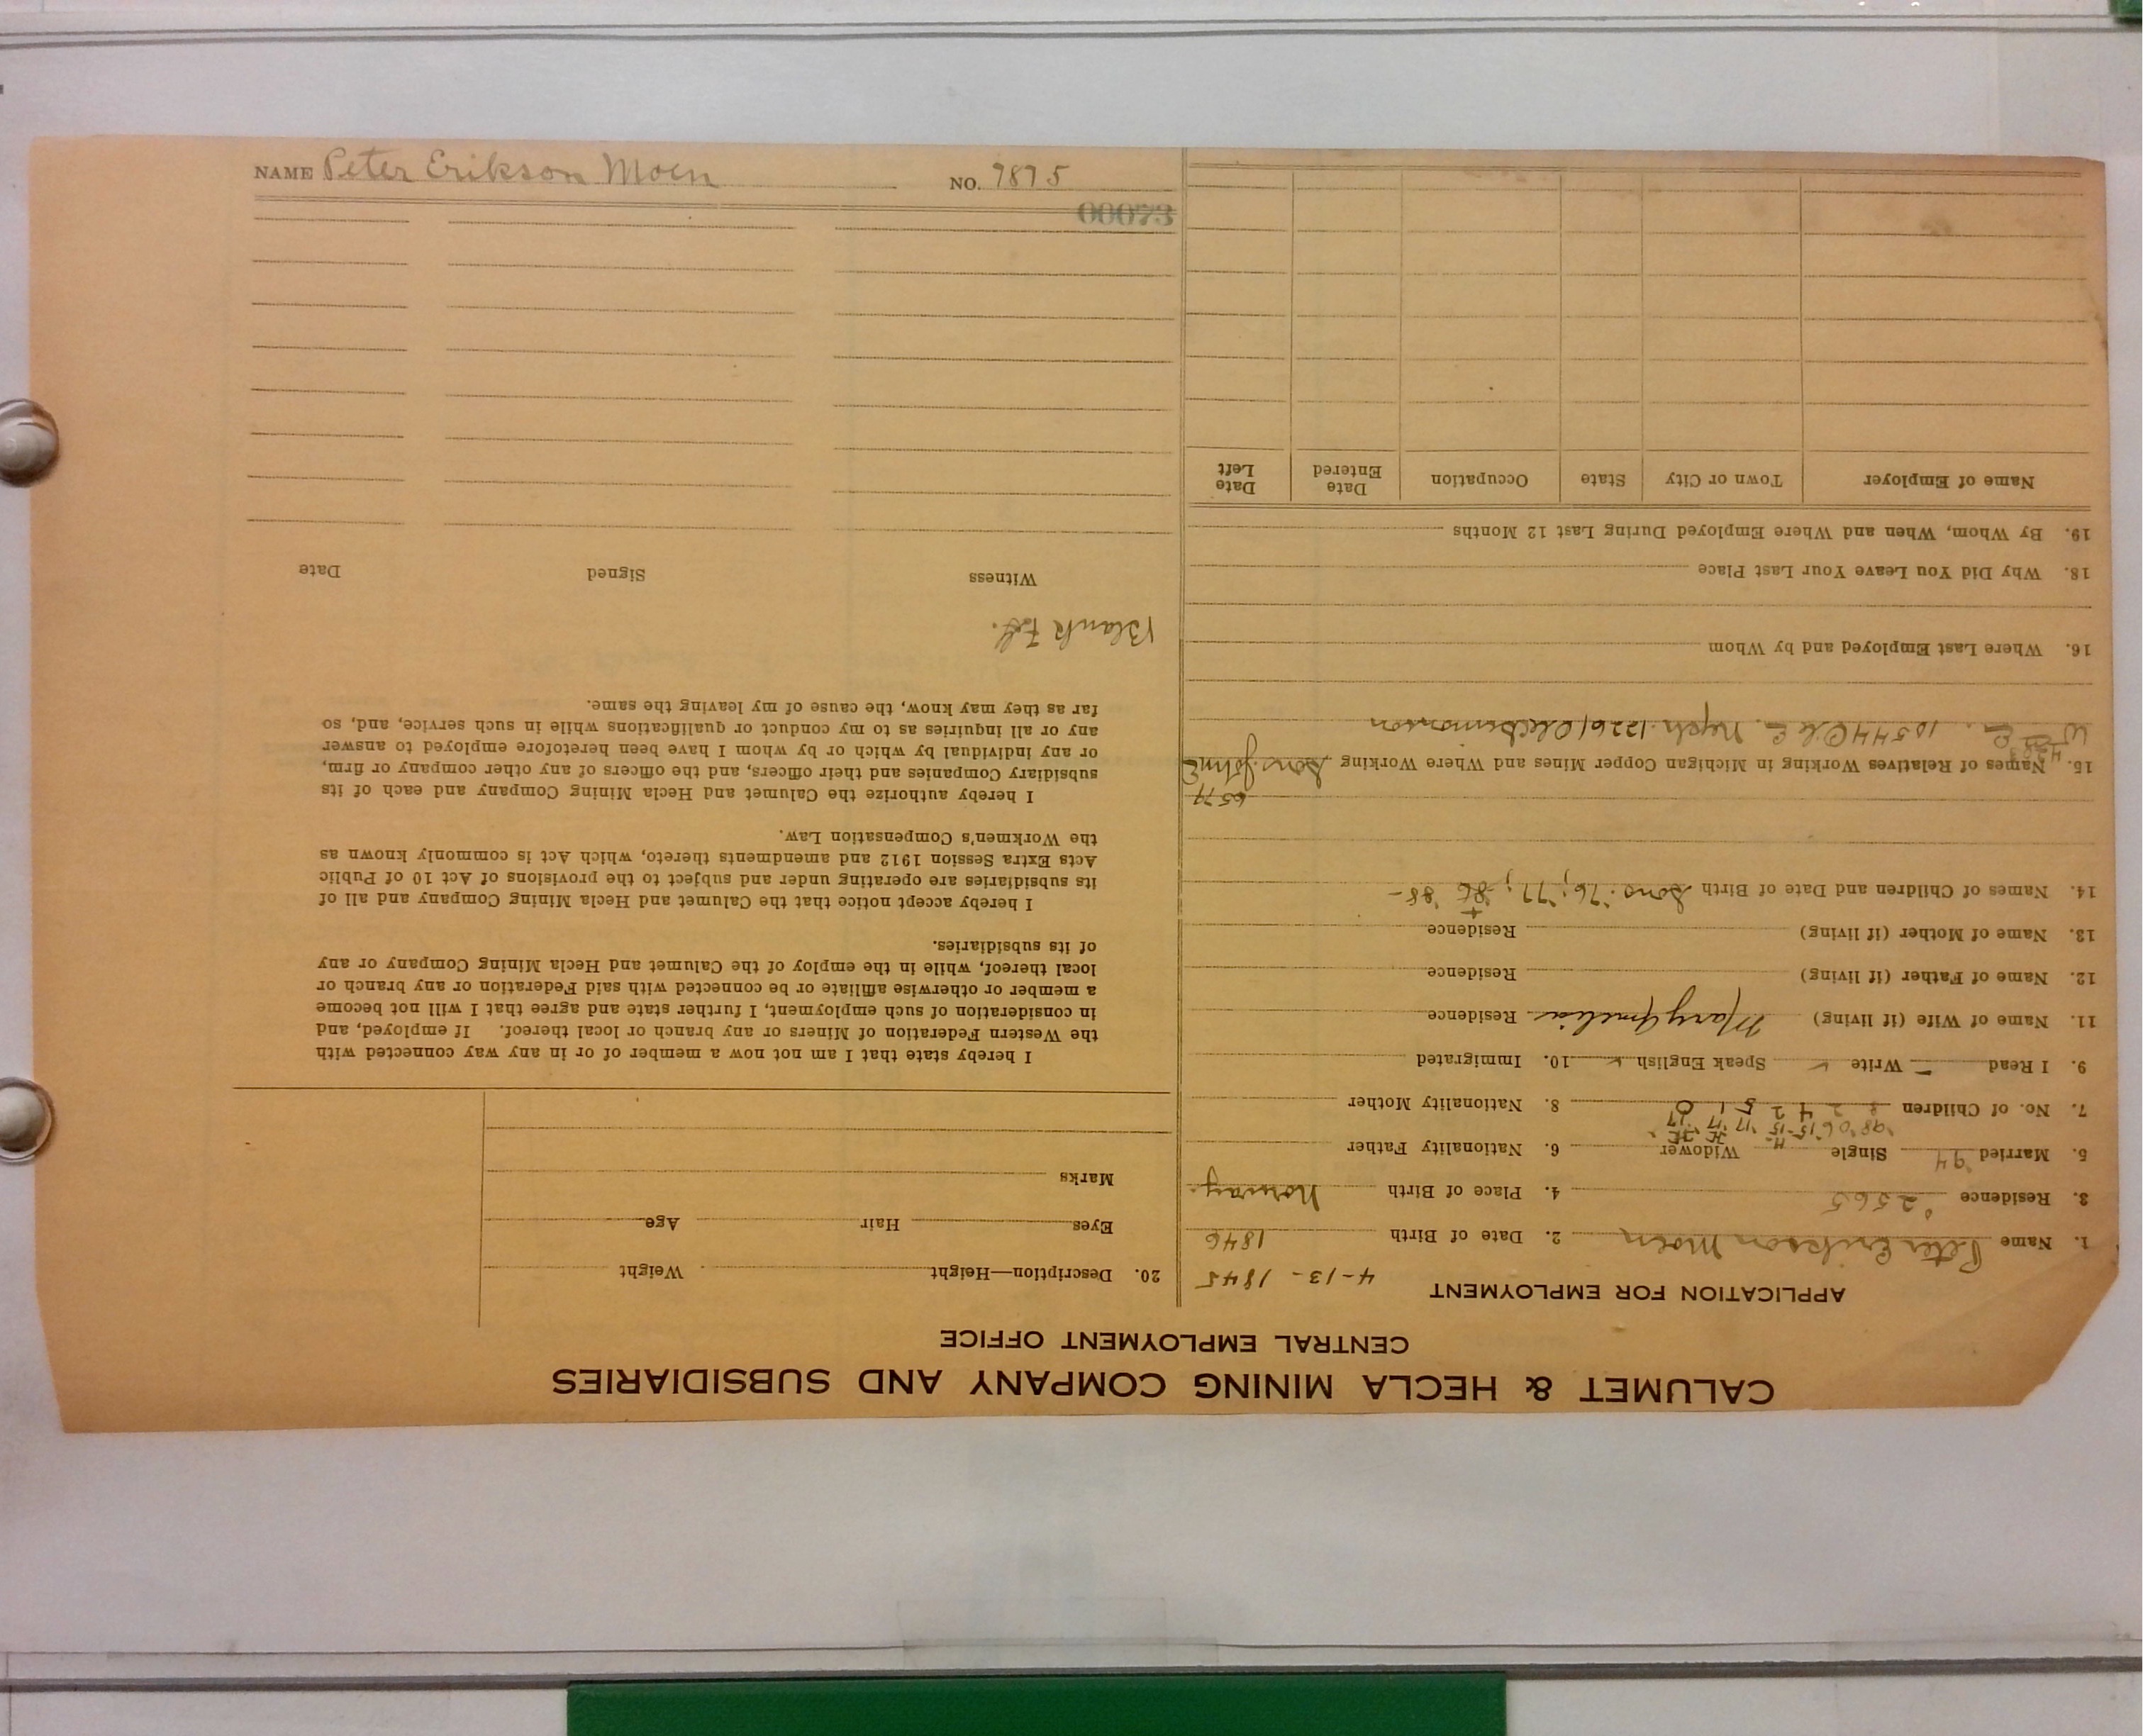 NAME Peter Erikson Moen NO. 9895
00073
CALUMET & HECLA MINING COMPANY AND SUBSIDIARIES
CENTRAL EMPLOYMENT OFFICE
APPLICATION FOR EMPLOYMENT
4-13-1845
1. Name Peter Erikson Moen 2. Date of Birth 1846
3. Residence 2565 4. Place of Birth Norway.
5. Married '94 Single Widower 6. Nationality Father
'98 '06 '15 '15 '17 '17 '17
7. No. of Children 8 2 4 2 5 1 0 8. Nationality Mother
9. I Read Write Speak English 10. Immigrated
11. Name of Wife (if living) Mary Amelia Residence
12. Name of Father (if living) Residence
13. Name of Mother (if living) Residence
14. Names of Children and Date of Birth Sons: '76; '77; '86 + '88-
6579
15. Names of Relatives Working in Michigan Copper Mines and Where Working Sons: John E
10544 Ole E. Neph. 12261 Ole Simonson
16. Where Last Employed and by Whom
18. Why Did You Leave Your Last Place
19. By Whom, When and Where Employed During Last 12 Months
Name of Employer Town or City State Occupation Date Entered Date Left
20. Description—Height Weight
Eyes Hair Age
Marks
I hereby state that I am not now a member of or in any way connected with
the Western Federation of Miners or any branch or local thereof. If employed, and
in consideration of such employment, I further state and agree that I will not become
a member or otherwise affiliate or be connected with said Federation or any branch or
local thereof, while in the employ of the Calumet and Hecla Mining Company or any
of its subsidiaries.
I hereby accept notice that the Calumet and Hecla Mining Company and all of
its subsidiaries are operating under and subject to the provisions of Act 10 of Public
Acts Extra Session 1912 and amendments thereto, which Act is commonly known as
the Workmen's Compensation Law.
I hereby authorize the Calumet and Hecla Mining Company and each of its
subsidiary Companies and their officers, and the officers of any other company or firm,
or any individual by which or by whom I have been heretofore employed to answer
any or all inquiries as to my conduct or qualifications while in such service, and, so
far as they may know, the cause of my leaving the same.
Blank
Witness Signed Date